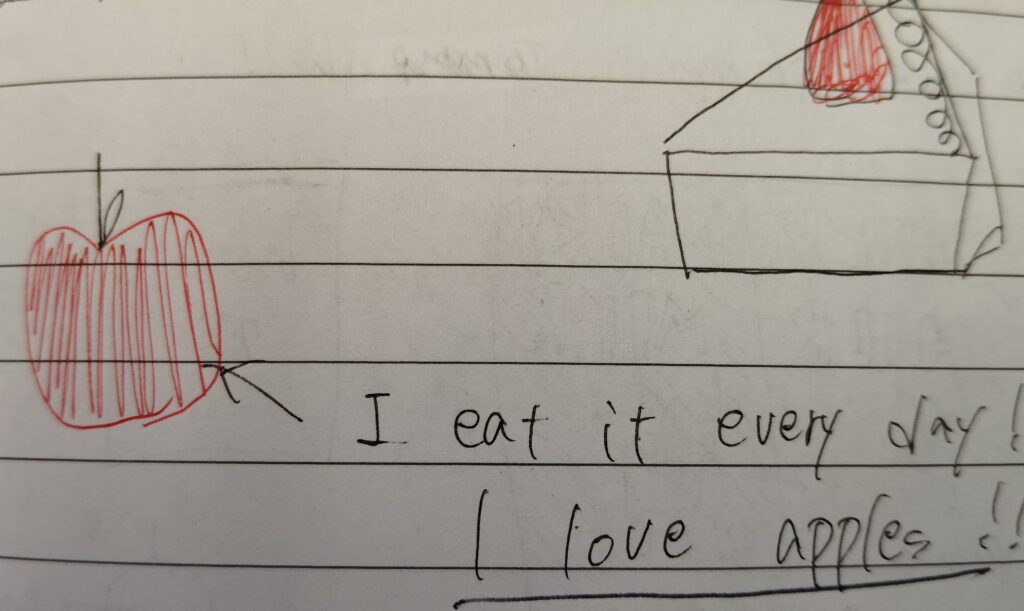 I eat it every day!
I love apples!!